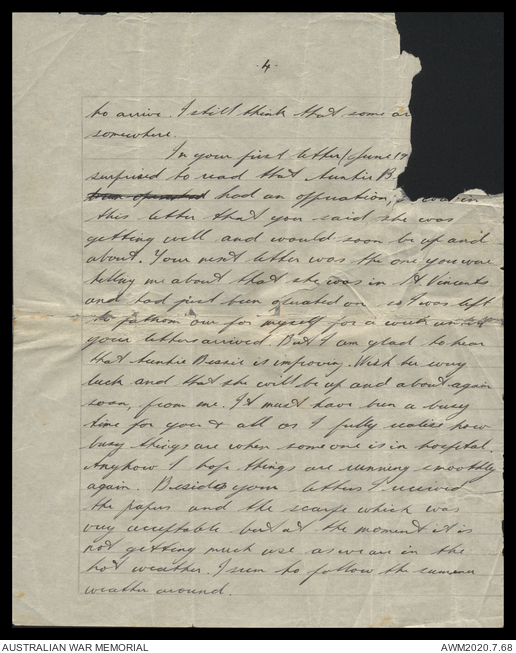 4.
to arrive. I still think that some ar
somewhere.
In your first letter (June 19
surprised to read that Auntie B
been operated had an operation,
this letter that you said she was
getting well and would soon be up and
about. Your next letter was the one you were
telling me about that she was in St Vincents
and had just been operated on so I was left
to fathom our for myself for a week until
your letters arrived. But I am glad to hear
that Auntie Bessie is improving. Wish her every
luck and that she will be up and about again
soon, from me. It must have been a busy
time for you & all as I fully realise how
busy things are when someone is in hospital.
Anyhow I hope things are running smoothly
again. Besides your letters I received
the papers and the scarfe which was
very acceptable but at the moment it is
not getting much use as we are in the
hot weather. I seem to follow the summer
weather around.
AUSTRALIAN WAR MEMORIAL
AWM2020.7.68